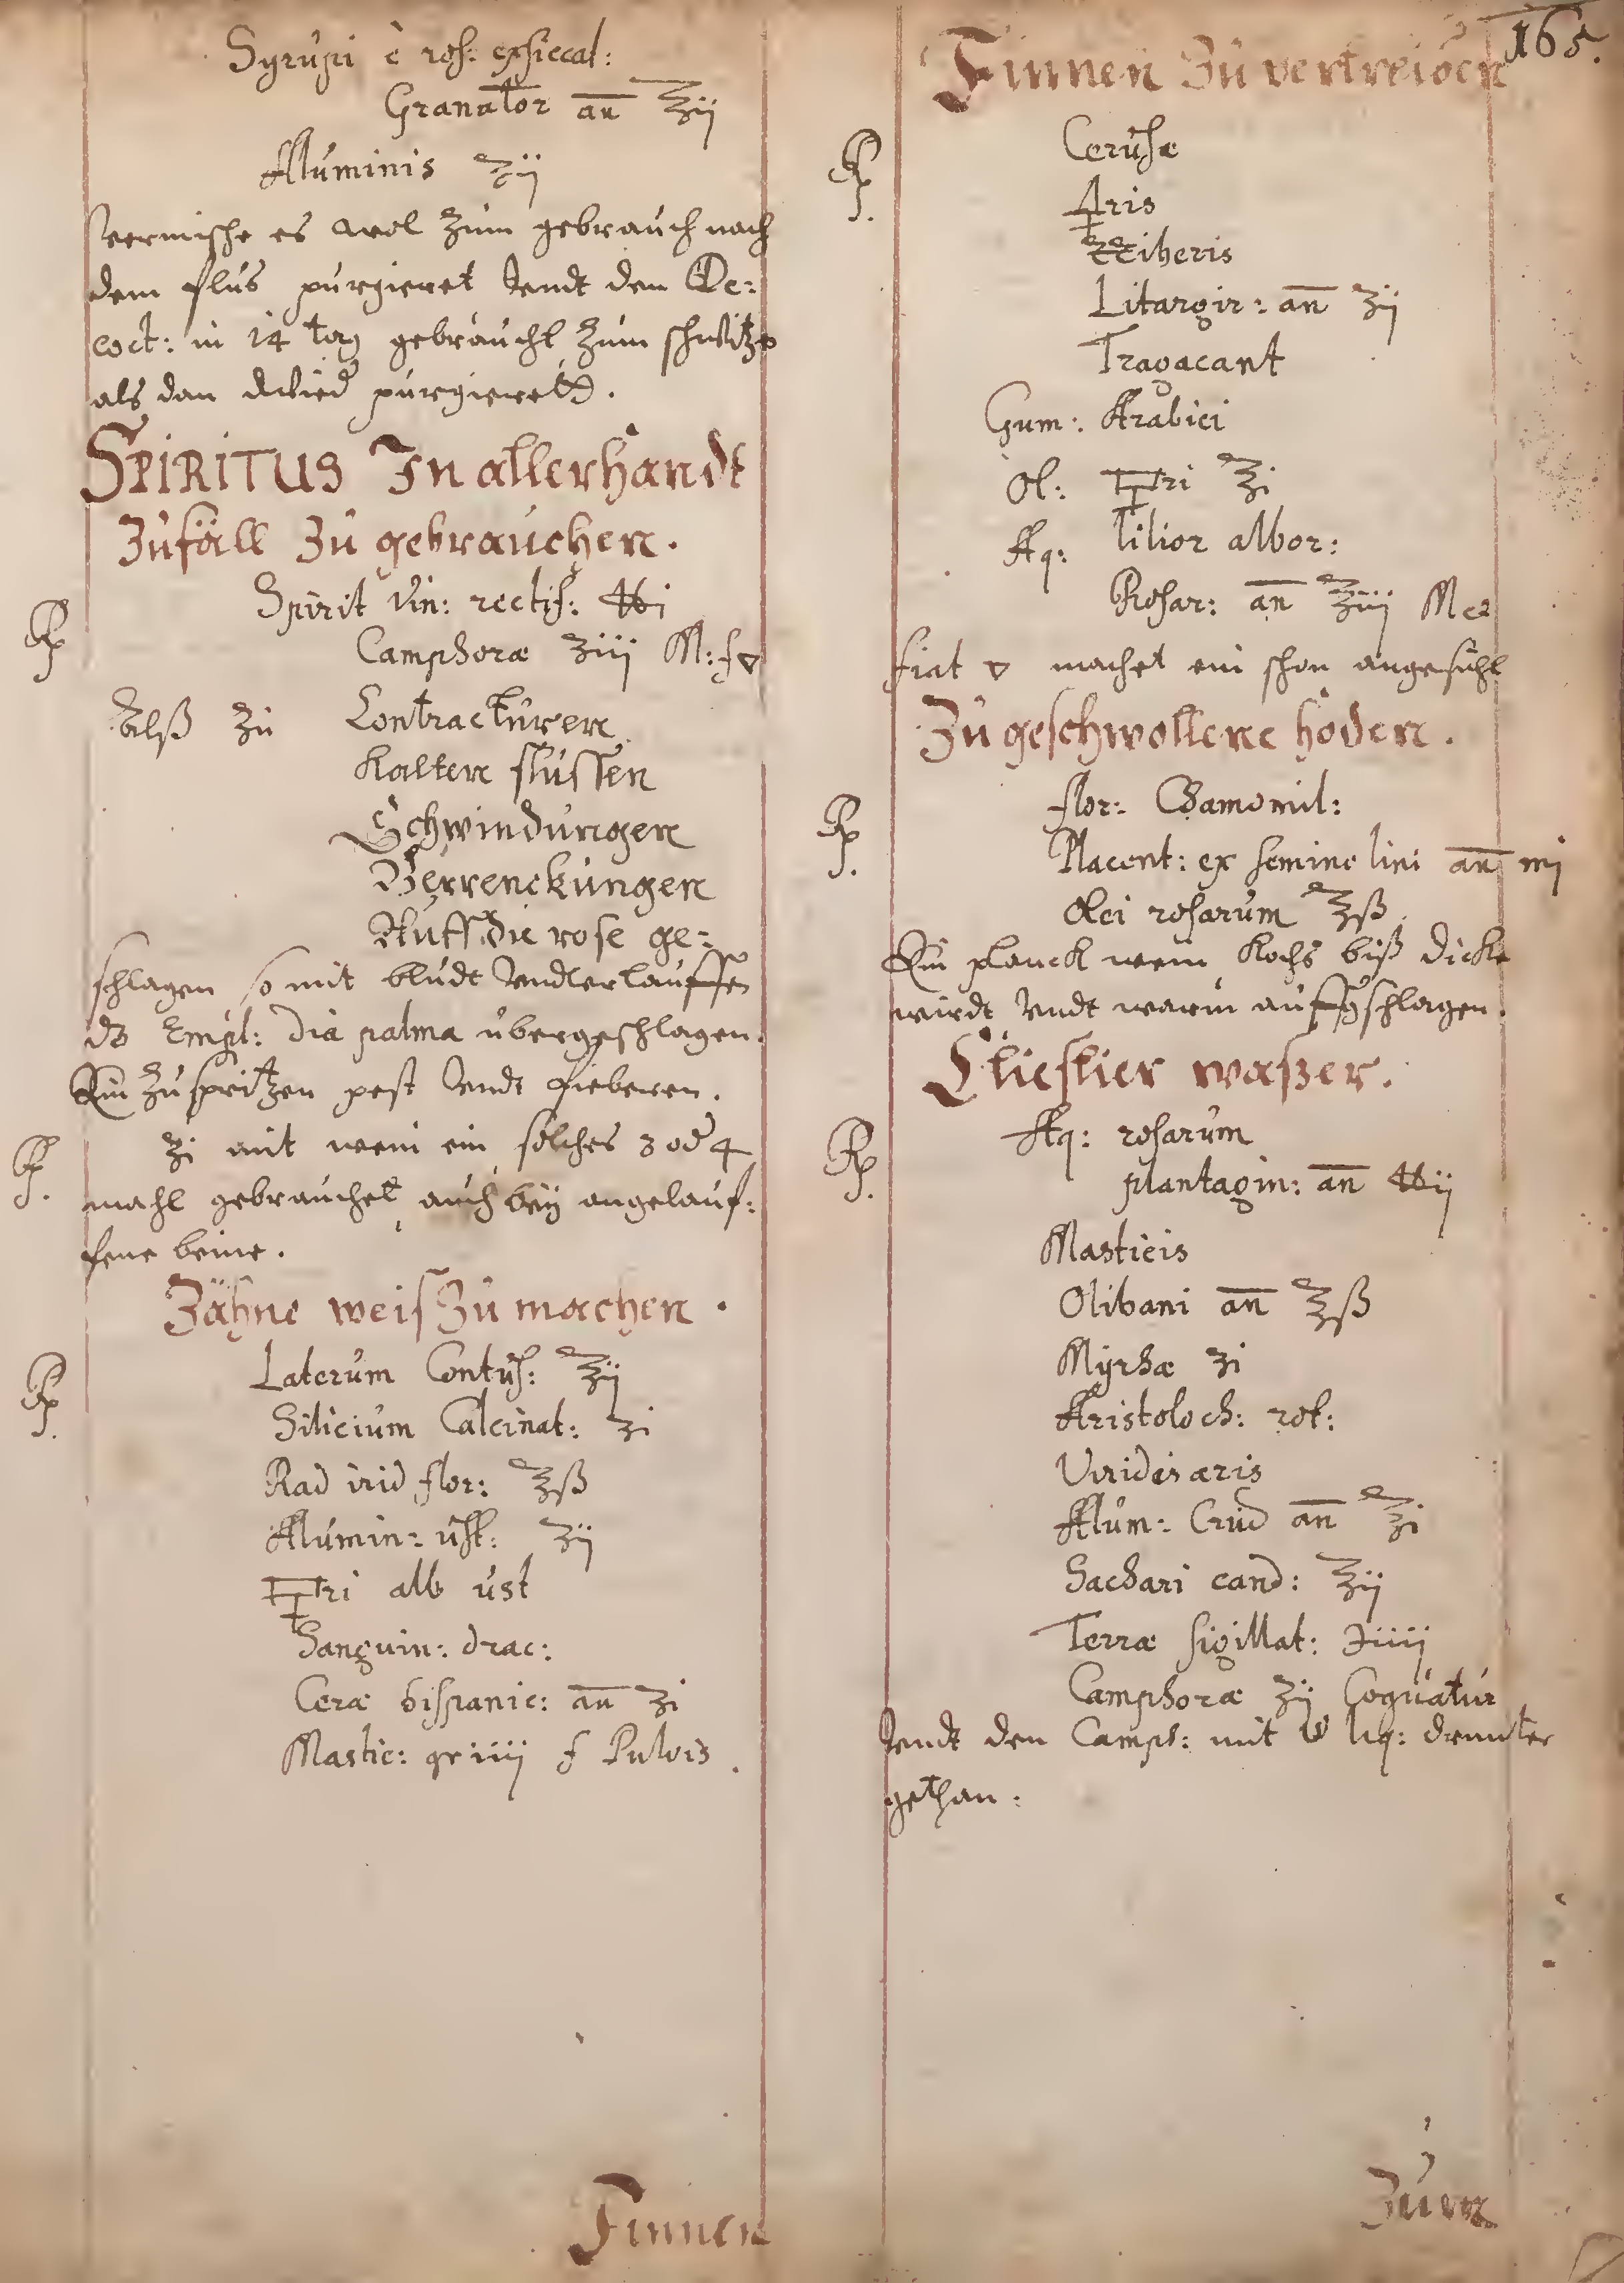 Syrupi è ros: exsiccat:
Granator an ℥ij
Aluminis ʒij
vermische es wol zum gebrauch nach
dem flus purgieret vndt den De:
coct: in 14 tag gebraucht zum schwitze
als dan purgieret
SPIRITUS In allerhandt
Zufäll Zu gebrauchen.
℞ Spirit vin: rectif: ℔i
Camphoræ ʒiij M: f
Alß zu Contracturen
Kalten flüssen
Schwindungen
Verrenckungen
Auff die rose ge:
schlagen so mit bludt vndlerlauffen
dz Empl: dia palma übergeschlagen.
Ein Zuspritzen pest vndt fieberen.
℞ ʒi mit wein ein solches 3 od 4
mahl gebrauchet auch beÿ angelauf:
fene beine.
Zähne weis Zu machen.
℞ Laterum Contus: ℥ij
Silicium Calcinat: ʒi
Rad irid flor: ℥ß
Alumin: ust: ʒij
ri alb ust
Sanguin: drac:
Ceræ hispanic: an ʒi
Mastic: gr iiij f Pulvis.
Finnen
165.
Finnen Zu vertreiben
℞ Cerusæ
Litargir: an ℥ij
Tragacant
Gum: Arabici
Ol: ri ℥i
Aq: lilior albor:
Rosar: an ℥iij M
fiat machet ein schon angesicht
Zu geschwollene hoden.
℞ flor: Chamomil:
Placent: ex semine lini an mj
Olei rosarum ℥ß
Ein planck wein Kochs biß dicke
wirdt vndt warm auffgschlagen.
Cliestier waszer.
℞ Aq: rosarum
plantagin: an ℔ij
Masticis
Olibani an ℥ß
Myrhæ ʒi
Aristoloch: rot:
Viridis æris
Alum: Crud an ℥i
Sachari cand: ℥ij
Terræ sigillat: ℈iiij
Camphoræ ʒij Coquatur
vndt den Camph: mit liq: drunter
gethan:
Zum